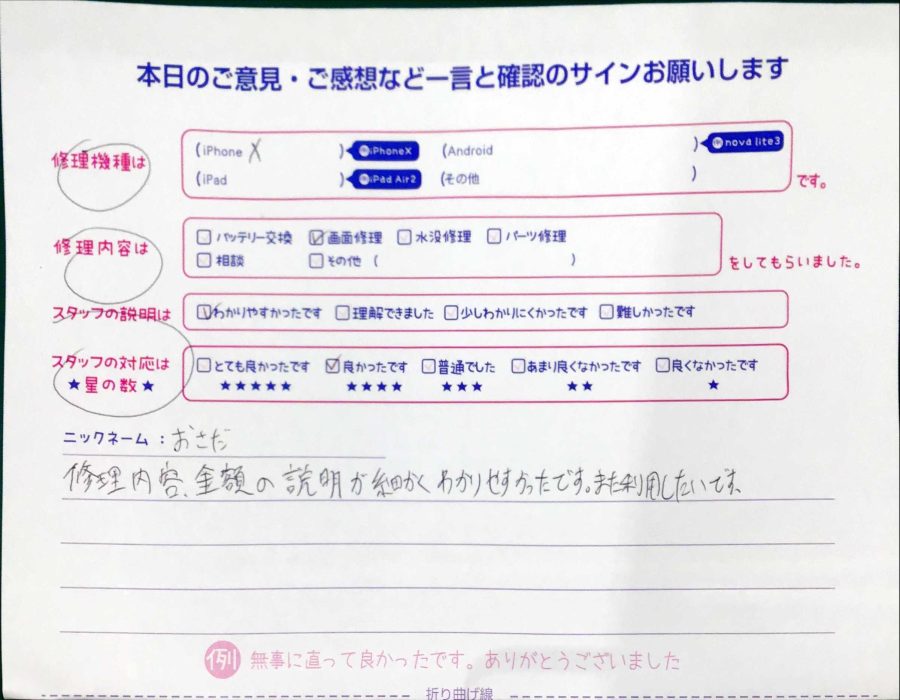 本日のご意見・ご感想など一言と確認のサインお願いします
修理機種は
(iPhone X ) iPhoneX (Android ) nova lite3
(iPad ) iPad Air2 (その他 ) です。
修理内容は
バッテリー交換 画面修理 水没修理 パーツ修理
相談 その他 ( ) をしてもらいました。
スタッフの説明は わかりやすかったです 理解できました 少しわかりにくかったです 難しかったです
スタッフの対応は とても良かったです 良かったです 普通でした あまり良くなかったです 良くなかったです
★星の数★ ★★★★★ ★★★★ ★★★ ★★ ★
ニックネーム:おさだ
修理内容、金額の説明が細かくわかりやすかったです。また利用したいです。
例 無事に直って良かったです。ありがとうございました
折り曲げ線